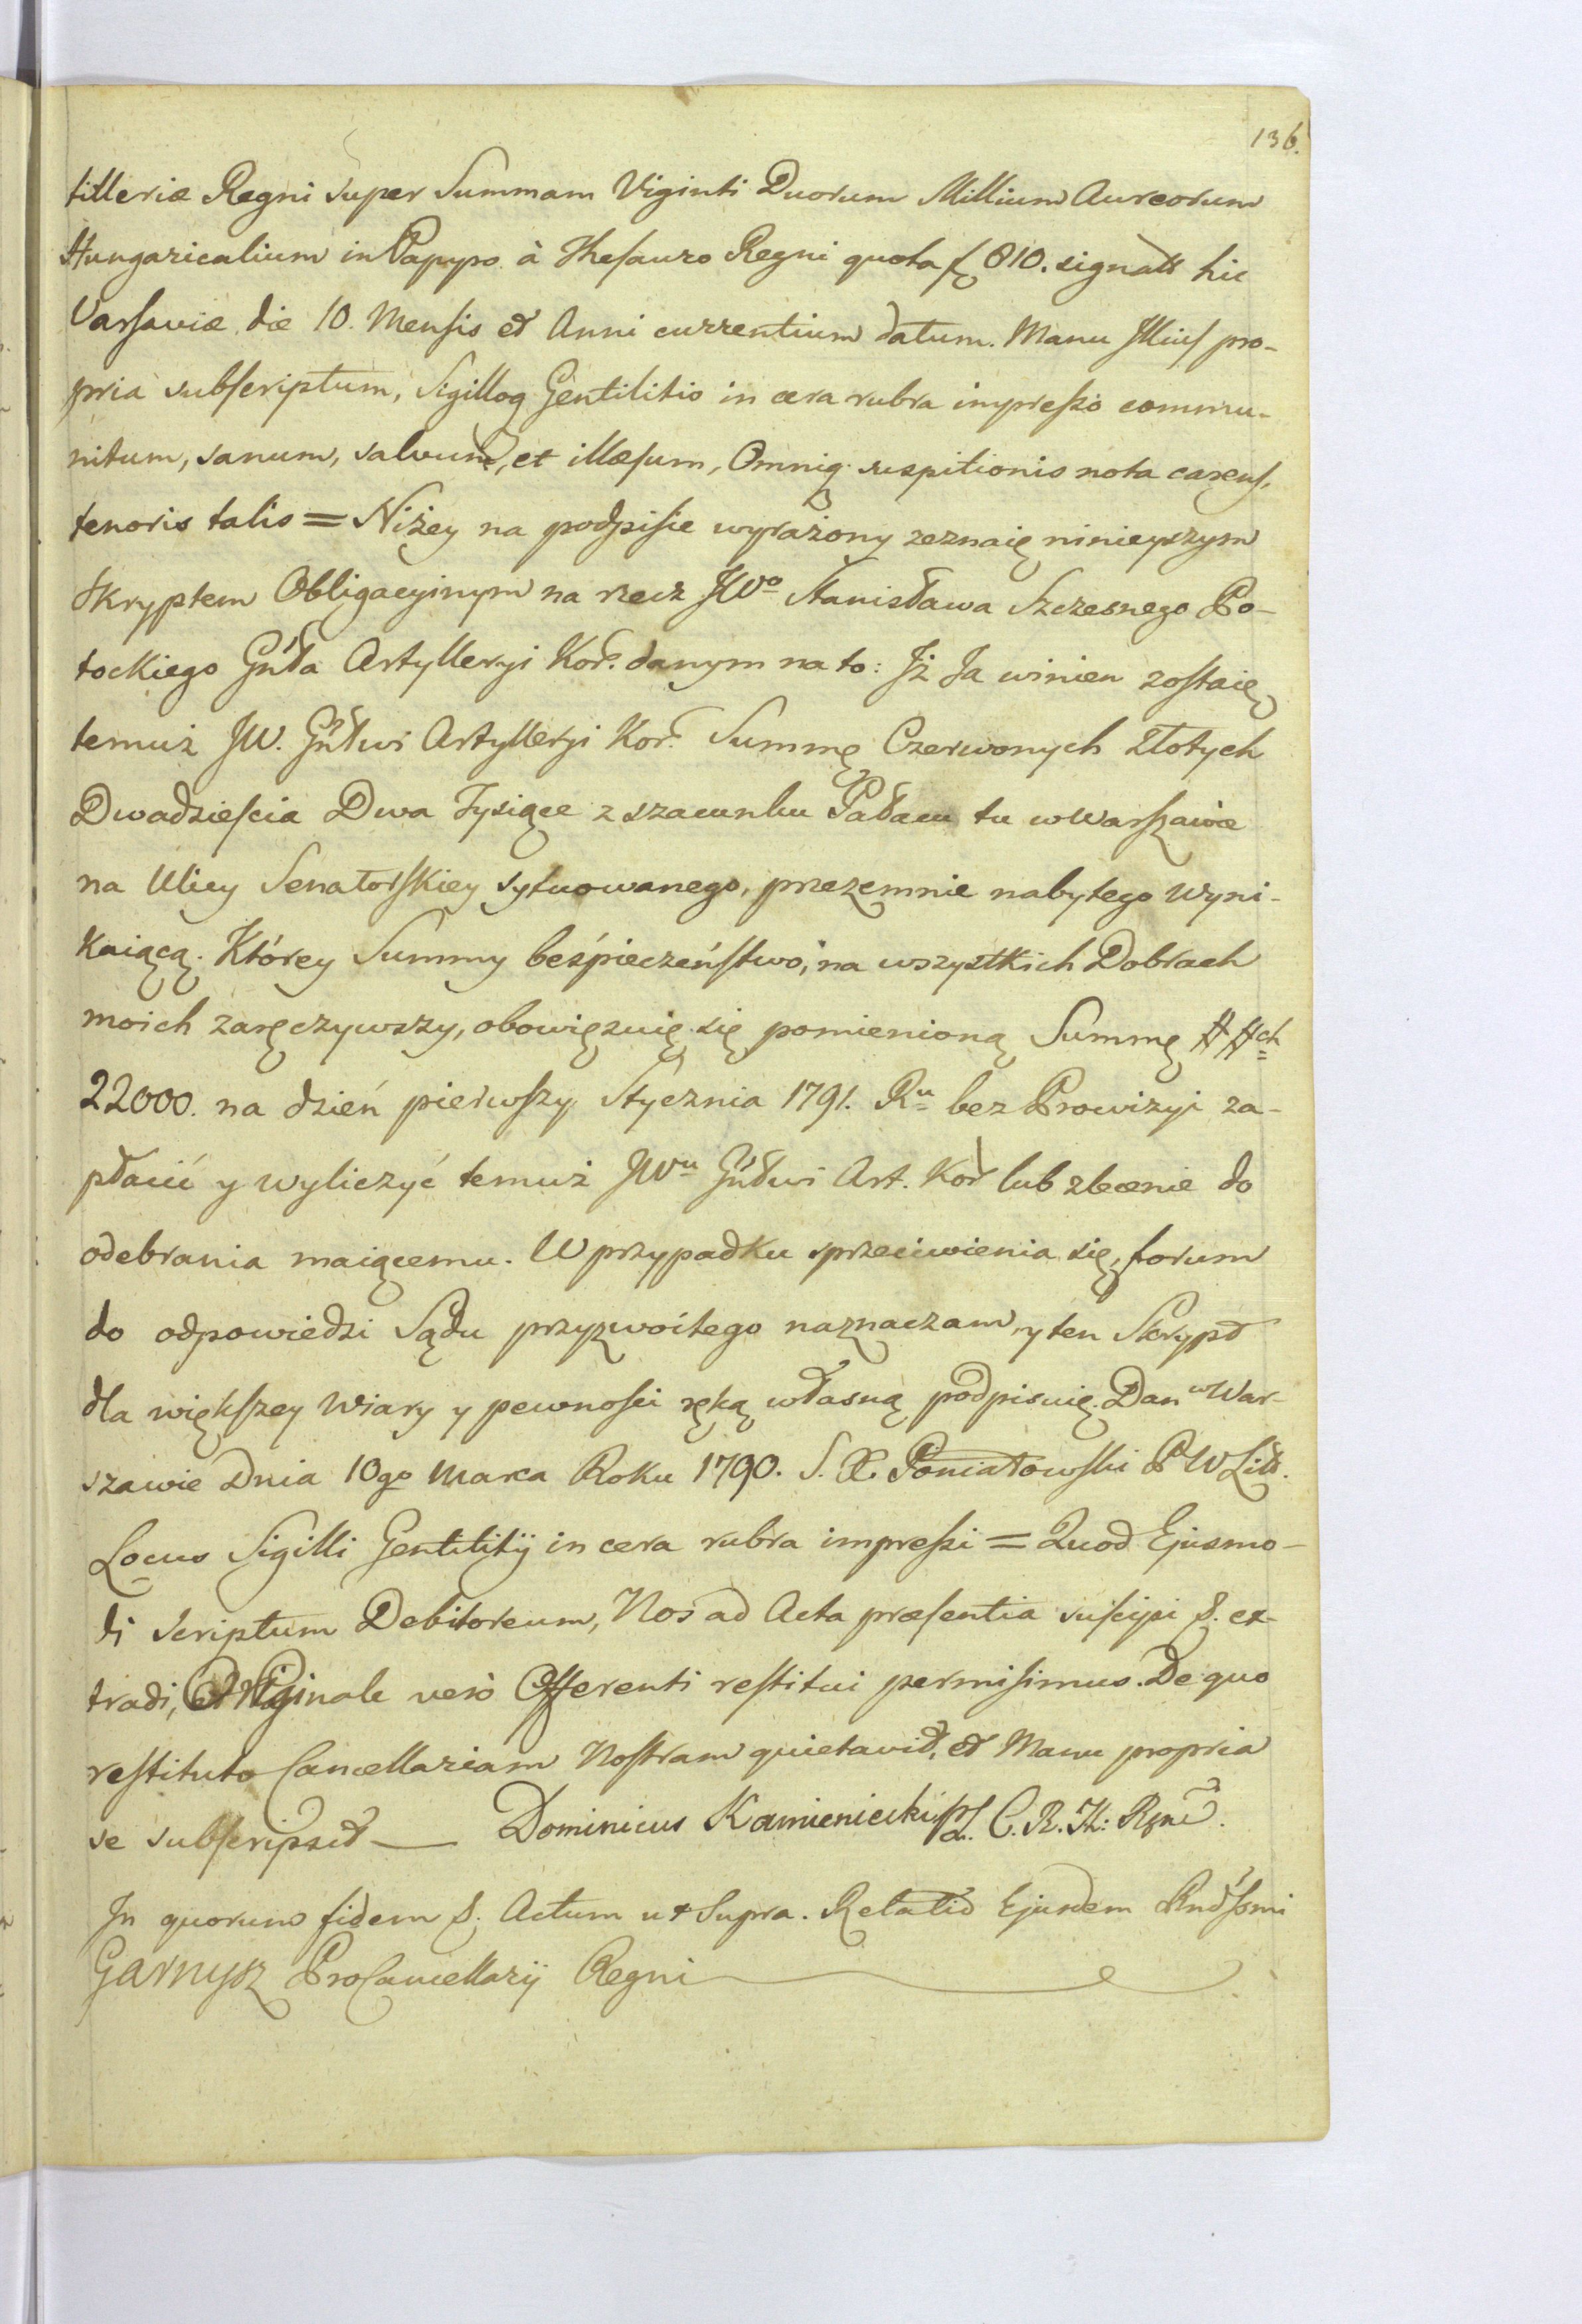 136.
tilleriæ Regni super Summam Viginti Duorum Millium Aureorum
Hungaricalium in Papypo à Thesauro Regni quota f 810. signatt hic
Varsaviæ die 10. Mensis et Anni currentium datum. Manu Illius pro-
pria subscriptum, Sigilloq Gentilitio in cera rubra impresso commu-
nitum, sanum, salvum, et illæsum, Omniq suspitionis nota carens,
tenoris talis = Niżey na podpisie wyrażony zeznaię ninieyszym
Skryptem Obligacyinym na rzecz JWo Stanisława Szczesnego Po-
tockiego Gnła Artylleryi Kor. danym na to: Iż Ja winien zostaię
temuż JW. Gnłwi Artylleryi Kor. Summę Czerwonych Złotych
Dwadzieścia Dwa Tysiące z szacunku Pałacu tu w Warszawie
na Ulicy Senatorskiey sytuowanego, przezemnie nabytego wyni-
kaiącą. Którey Summy beśpieczeństwo, na wszystkich Dobrach
moich zaręczywszy, obowięzuię się pomienioną Summę ##ch
22000. na dzień pierwszy Stycznia 1791. Ru bez Prowizyi za-
płacić y wyliczyć temuż JWu Gnłwi Art. Kor lub zlecenie do
odebrania maiącemu. W przypadku sprzeciwienia się, forum
do odpowiedzi Sądu przyzwoitego naznaczam, y ten Skrypt
dla większey Wiary y pewności ręką własną podpisuię. Dan w War-
szawie Dnia 10go Marca Roku 1790. S. X. Poniatowski P W Litt.
Locus Sigilli Gentilitij in cera rubra impressi = Quod Ejusmo-
di Scriptum Debitoreum, Nos ad Acta præsentia suscipi &. ex-
tradi, Originale verò Offerenti restitui permisimus. De quo
restituto Cancellariam Nostram quietavit, et Manu propria
se subscripsit — Dominicus Kamieniecki C. R. Th:
In quorum fidem &. Actum ut Supra. Relatio Ejusdem Rndssmi
Garnysz ProCancellarij Regni